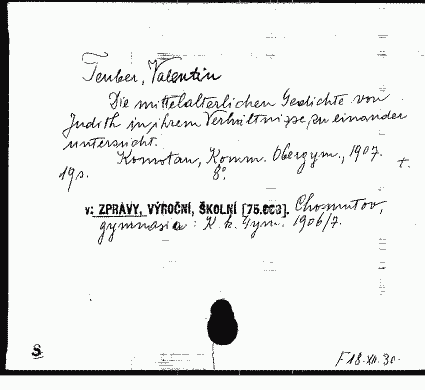 Teuber, Valentin
Die mittelalterlichen Gedichte von
Judith in ihrem Verhältnisse zu einander
untersucht.
Komotau, Komm. Obergym., 1907.
19 s. 8°. t.
v: ZPRÁVY, VÝROČNÍ, ŠKOLNÍ [75.663]. Chomutov,
gymnasia: K. k. Gym. 1906/7.
S F 18.XII.30.